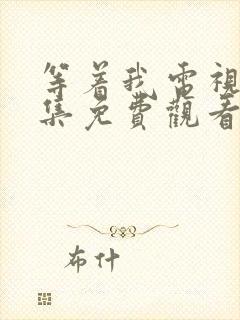 等着我電視
集免費觀看
布什